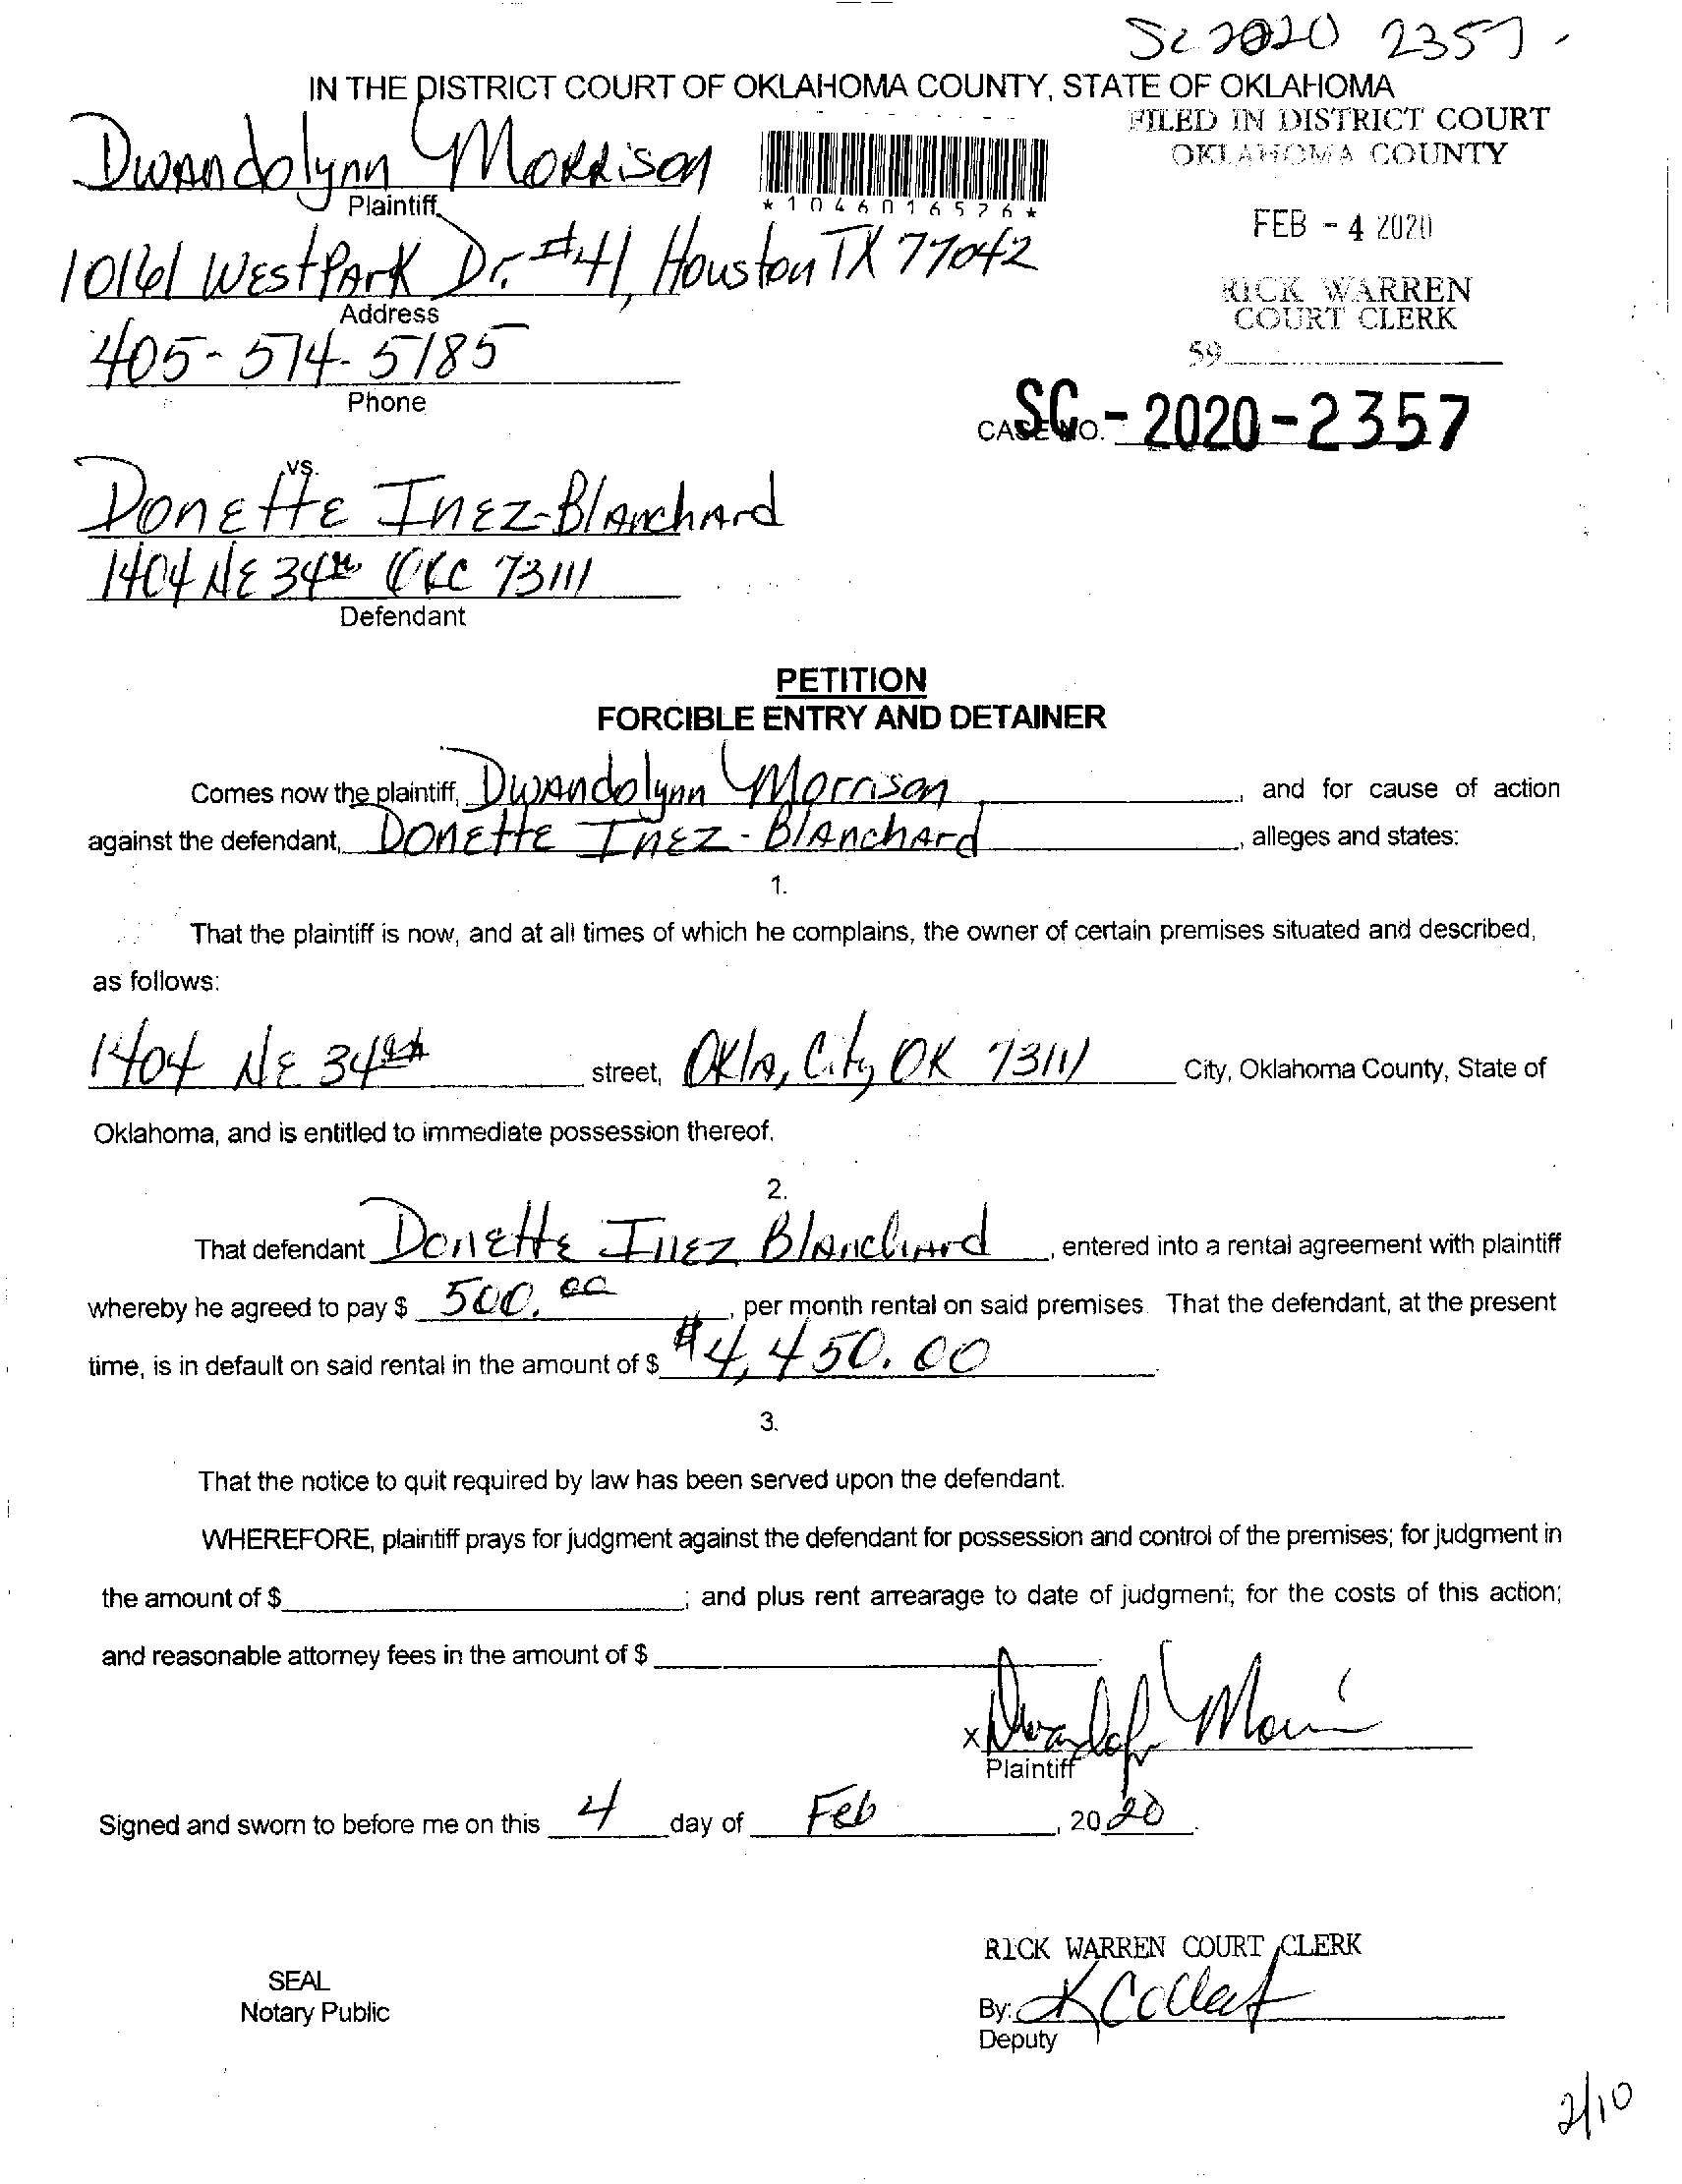 SC 2020 2357
IN THE DISTRICT COURT OF OKLAHOMA COUNTY, STATE OF OKLAHOMA
FILED IN DISTRICT COURT
OKLAHOMA COUNTY
Dwandolynn Morrison
Plaintiff
*1046016526*
FEB - 4 2020
10161 WestPark Dr. #41, Houston TX 77042
Address
RICK WARREN
COURT CLERK
405-574-5185
59
Phone
CASE NO. SC - 2020-2357
vs.
Donette Inez-Blanchard
1404 NE 34th OKC 73111
Defendant
PETITION
FORCIBLE ENTRY AND DETAINER
Comes now the plaintiff, Dwandolynn Morrison, and for cause of action
against the defendant, Donette Inez-Blanchard, alleges and states:
1.
That the plaintiff is now, and at all times of which he complains, the owner of certain premises situated and described,
as follows:
1404 NE 34th street, Okla, City OK 73111 City, Oklahoma County, State of
Oklahoma, and is entitled to immediate possession thereof.
2.
That defendant Donette Inez Blanchard, entered into a rental agreement with plaintiff
whereby he agreed to pay $ 500.00, per month rental on said premises. That the defendant, at the present
time, is in default on said rental in the amount of $ $4,450.00.
3.
That the notice to quit required by law has been served upon the defendant.
WHEREFORE, plaintiff prays for judgment against the defendant for possession and control of the premises; for judgment in
the amount of $ ; and plus rent arrearage to date of judgment; for the costs of this action;
and reasonable attorney fees in the amount of $
x
Plaintiff
Signed and sworn to before me on this 4 day of Feb, 2020.
RICK WARREN COURT CLERK
SEAL
Notary Public
By:
Deputy
2/10